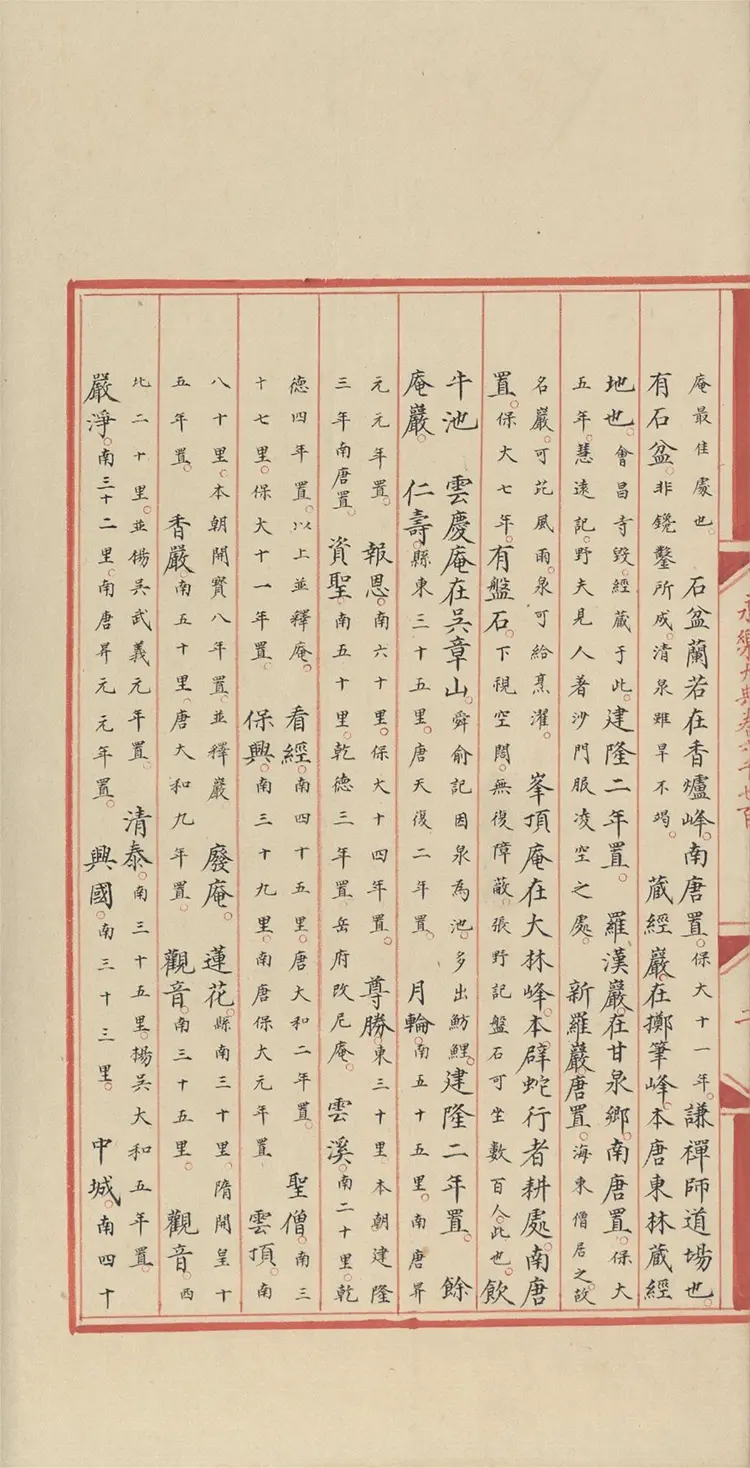 永樂大典卷六千七百
二
庵最佳處也。石盆蘭若在香爐峰。南唐置。保大十一年。謙禪師道場也。
有石盆。非鐫鑿所成。清泉雖旱不竭。藏經巖。在擲筆峰。本唐東林藏經
地也。會昌寺毀。經藏于此。建隆二年置。羅漢巖。在甘泉鄉。南唐置。保大
五年。慧遠記。野夫見人著沙門服凌空之處。新羅巖。唐置。海東僧居之。故
名巖。可芘風雨。泉可給烹濯。峯頂庵在大林峰。本辟蛇行者耕處。南唐
置。保大七年。有盤石。下視空闊。無復障蔽。張野記盤石可坐數百人。此也。飲
牛池　雲慶庵在吳章山。舜俞記因泉為池。多出魴鯉。建隆二年置。餘
庵巖。仁壽。縣東三十五里。唐天復二年置。月輪。南五十五里。南唐昇
元元年置。報恩。南六十里。保大十四年置。尊勝。東三十里。本朝建隆
三年南唐置。資聖。南五十里。乾德三年置。岳府改尼庵。雲溪。南二十里。乾
德四年置。以上並釋庵。看經。南四十五里。唐大和二年置。聖僧。南三
十七里。保大十一年置。保興。南三十九里。南唐保大元年置。雲頂。南
八十里。本朝開寶八年置。並釋巖　廢庵。蓮花。縣南三十里。隋開皇十
五年置。香嚴。南五十里。唐大和九年置。觀音。南三十五里。觀音。西
北二十里。並楊吳武義元年置。清泰。南三十五里。楊吳大和五年置。
嚴淨。南三十二里。南唐昇元元年置。興國。南三十三里。中城。南四十